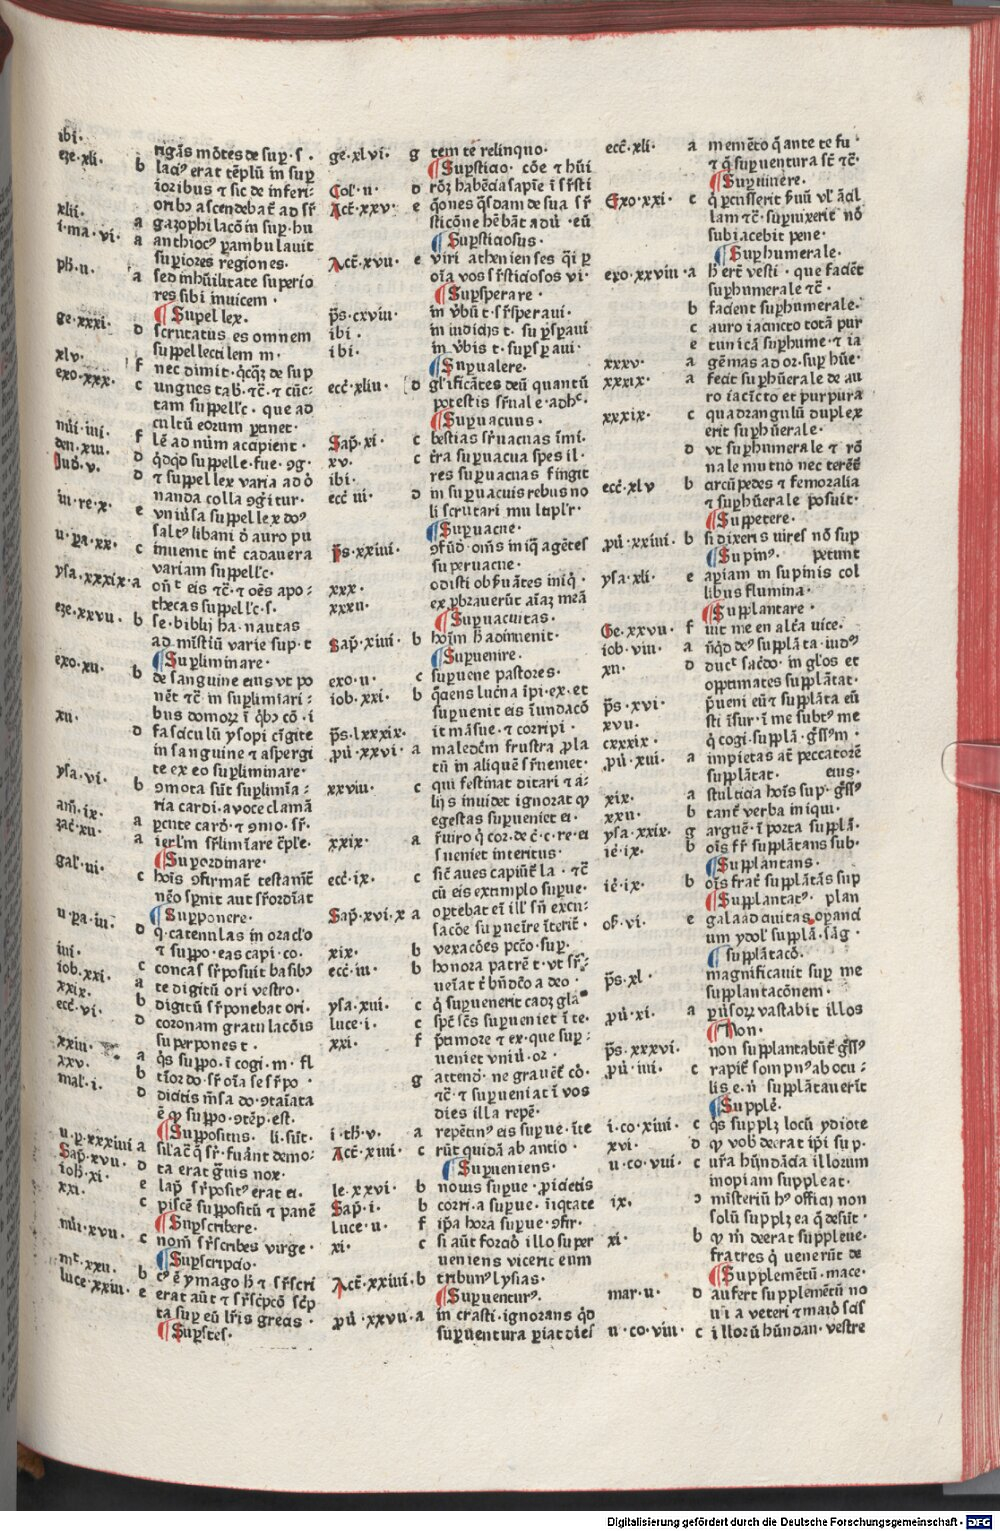 ibi·
eze·xli· rigãs mõtes de suꝑ·s·
b lacꝰ erat tẽplũ in suꝑ
ioribus ⁊ sic de inferi⸗
oribꝫ ascendebat̃ ad sr̃
xlii· a gazophilacõ in suꝑ·hu
i·ma·vi· a anthiocꝰ ꝑambulauit
suꝑiores regiones·
ph·ii· a sed in hũilitate superio
res sibi inuicem·
¶Supellex·
ge·xxxi· d scrutatus es omnem
suppellectilem m·
xlv· f nec dimit·q̃cqᷓꝫ de sup
exo·xxx· c ungues tab·⁊c̃·⁊ cũc⸗
tam suppell'c·que ad
cultũ eorum ꝑtinet·
nũi·iiii· f lẽ ad nũm accipient·
deu·xiii· d q̃dqᷓd suppelle·fue·ꝯg·
Jud·v· d ⁊ suppellex varia ad o
nanda colla ꝯgitur·
iii·re·x· e vniũsa suppellex doꝰ
saltꝰ libani d̃ auro pu
ii·pa·xx· c inuenit int̃ cadauera
variam suppell'c·
ysa·xxxix· a on̄t eis ⁊c̃·⁊ oẽs apo⸗
thecas suppell'c·s·
eze·xxvii· b se·biblij ha·nautas
ad mĩstiũ varie sup·t
¶Supliminare·
exo·xii· b de sanguine eius vt po
nẽt ⁊c̃ in supliminari⸗
bus domoꝝ ĩ q̃bꝫ cõ·i
xii· d fasciculũ ysopi cĩgite
in sanguine ⁊ aspergi
te ex eo supliminare·
ysa·vi· b ꝯmota sũt supliminia⸗
ria cardi·a voce clamã
am̃·ix· a ꝑcute card̃·⁊ ꝯmo·sr̃·
zac̃·xii· a ierl'm sr̃limĩare c̃ple·
¶Supordinare·
gal'·iii· c hoĩs ꝯfirmat̃ testamẽt
nẽo spnit aut sr̃ordĩat
¶Supponere·
ii·pa·iii· d q·catenulas in oraclo
⁊ suppo·eas capi·co·
iiii· c concas sr̃posuit basibꝫ
iob·xxi· a te digitũ ori vestro·
xxix· b digitũ sr̃ponebat ori·
ecc̃·vi· d coronam gratulacõis
superpones t·
xxiii· a q̃s suppo·ĩ cogi·m·fl
xxv· b tĩor do·sr̃ oĩa se sr̃po·
mal'·i· d dicitis m̃sa do·ꝯtaĩata
ẽ ꝙ suppo·ꝯtẽp·est·
¶Suppositus· li·sũt·
ii·ꝑ·xxxiiii a sil'ac̃ q̃ sr̃·fuãnt demo⸗
Sap·xvii· d ta erat g̃uis nox·
iob·xi· e lap̃ sr̃positꝰ erat ei·
xxi· c piscẽ suppositũ ⁊ panẽ
¶Supscribere·
nũi·xvii· c nom̃ sr̃scribes virge·
¶Supscripcio·
mt̃·xxii· b cꝰ ẽ ymago h̃ ⁊ sr̃scri
luce·xxiii· e erat aũt ⁊ sr̃sc̃pcõ sc̃p
ta suꝑ eũ lr̃is grecis·
¶Supstes·
ge·xlvi· g tem te relinquo·
¶Supsticio·cõe ⁊ hũi
Col'·ii· d rõꝫ habẽcia sapĩe ĩ sr̃sti
Act̃·xxv· e q̃ones q̃sdam de sua sr̃
sticõne hẽbãt adũ·eũ
¶Supsticiosus·
Act̃·xvii· e viri athenienses q̃i ꝑ
oĩa vos sr̃sticiosos vi·
¶Supsperare·
p̃s·cxviii· in v̾bũ t·sr̃speraui·
ibi· in iudicijs t·supsperaui
ibi· in v̾bis t·supsꝑaui·
¶Supualere·
ecc̃·xliii· d gl'ificãtes deũ quantũ
potestis sr̃ual e·adhᶜ·
¶Supuacuus·
Sap̃·xi· c bestias sr̃uacuas imi·
xv· c t̃ra supuacua spes il·
ibi· res supuacuas fingit
ecc̃ iii· d in supuacuis rebus no
li scrutari multipl'r·
¶Supuacue·
p̃s·xxiiii· ꝯfũd·oms iniq̃ agẽtes
superuacue·
xxx· odisti obs̃uãtes iniq̃·
xxxii· exꝓbrauerũt aĩaꝫ meã
¶Supuacuitas·
Sap̃·xiiii· b hoĩm h̃ adinuenit·
¶Supuenire·
exo·ii· c supuene pastores·
iob·xxi· b q̃ciens lucn̾a ĩpi·ex·et
supuenit eis ĩundacõ
p̃s·lxxxix· it mãsue·⁊ corripi·
ꝓũ·xxvi· a maledc̃m frustra ꝓla
tũ in aliquẽ sr̃ueniet·
xxviii· c qui festinat ditari ⁊ a⸗
lijs inuidet ignorat ꝙ
egestas supueniet ei·
xxix· a r̃uiro q̃ cor·de c̃·c·re·ei
sueniet interitus·
ecc̃·ix· c sic̃ aues capiũt̃ la·⁊c̃
cũ eis extimplo supue·
Sap̃·xvi·x a oꝑtebat eĩ ill' sñ excu⸗
sacõe supueĩre ĩterit̃·
xix· b vexacões pcc̃o·sup·
ecc̃·iii· b honora patrẽ t·vt sr̃⸗
ueiat t̃ bñdc̃o a deo·
ysa·xiii· c q̃ supuenerit cadꝫ gla
luce·i· c sp̃c sc̃s supueniet ĩ te·
xxi· f p̃ timore ⁊ ex que sup⸗
ueniet vniũ·or·
g attend̃·ne grauẽt̃ cõ·
⁊c̃·⁊ supueniat ĩ vos
dies illa repẽ·
i·th̃·v· a repẽtinꝰ eis supue·ĩte
Act̃·xiiii· c rũt quidã ab antio·
¶Supueniens·
le·xxvi· b nouis supue·ꝓicietis
Sap̃·i· b corri·a supue·iiqtate
luce·ii· f ip̃a hora supue·ꝯfir·
xi· c si aũt forcio illo super
ueniens vicerit eum
Act̃·xxiiii·b tribunꝰ lysias·
¶Supuenturꝰ·
ꝓũ·xxvii·a in crasti·ignorans q̃d
supuentura ꝑiat dies
ecc̃·xli· a memẽto q̃ ante te fu
⁊ q̃ supuentura st̃ ⁊c̃·
¶Supuiuere·
Exo·xxi· c q̃ ꝑcusserit s̃uũ vl' ãcil
lam ⁊c̃·supuixerit nõ
subiacebit pene·
¶Suphumerale·
exo·xxviii·a h̃ erc̃ vesti·que faciẽt
suphumerale ⁊c̃·
b facient suphumerale·
c auro iacincto totã pur
e tunicã suphume·⁊ ia
xxxv· a gẽmas ad or·sup hũe·
xxxix· a fecit suphũerale de au
ro iacĩcto et purpura
xxxix· c quadrangulũ duplex
erit suphũerale·
d vt suphumerale ⁊ rõ
nale mutuo nec terẽt̃
ecc̃·xlv b circũpedes ⁊ femoralia
⁊ suphũerale posuit·
¶Suppetere·
ꝓũ·xxiiii· b si dixeris uires nõ sup
¶Supinꝰ· petunt
ysa·xli· e apiam in supinis col
libus flumina·
¶Supplantare·
Ge·xxvii· f uit me en alt̃a uice·
iob·viii· a nũqd deꝰ supplãta·iudꝰ
xii· d ducᵗ sac̃do·in gl'os et
optimates supplãtat·
p̃s·xvi· p̃ueni eũ ⁊ supplãta eũ
xvii· sti ĩsur·ĩ me subtꝰ me
cxxxix· q̃ cogi·supplã·g̃ssꝰm·
ꝓũ·xiii· a impietas at̃ peccatorẽ
supplãtat· eius·
xix· a stulticia hoĩs sup·g̃ssꝰ
xxii· b tant̃ verba iniqui·
ysa·xxix· g arguẽ·ĩ porta supplã·
ie·ix· b oĩs fr̃ supplãtans sub·
¶Supplantans·
ie·ix· b oĩs frat̃ supplãtãs sup
¶Supplantatꝰ· plan
os̃·vi· e galaad ciuitas oꝑanci
um ydol' supplã·sãg·
¶Supplãtacõ·
p̃s·xl· magnificauit sup me
supplantacõnem·
ꝓũ·xi· a ꝑũsoꝝ vastabit illos
¶Non·
p̃s·xxxvi· non supplantabũt̃ g̃ssꝰ
ꝓũ·iiii· c rapit̃ sompnꝰ ab ocu⸗
lis e·ñ supplãtauerĩt
¶Supplẽ·
i·co·xiiii· c q̃s supplꝫ locũ ydiote
xvi· d ꝙ vob̃ deerat ip̃i sup·
ii·co·viii· c ur̃a hũndãcia illorum
inopiam suppleat·
ix· c misteriũ hꝰ officij non
solũ supplꝫ ea q̃ desũt·
xi· b ꝙ m̃ deerat suppleue·
fratres q̃ uenerũt de
¶Supplemẽtũ·mace·
mar·ii· d aufert supplemẽtũ no
uũ a veteri ⁊ maio̾ scis
ii·co·viii· c illorũ hũndan·vestre
Digitalisierung gefördert durch die Deutsche Forschungsgemeinschaft - DFG